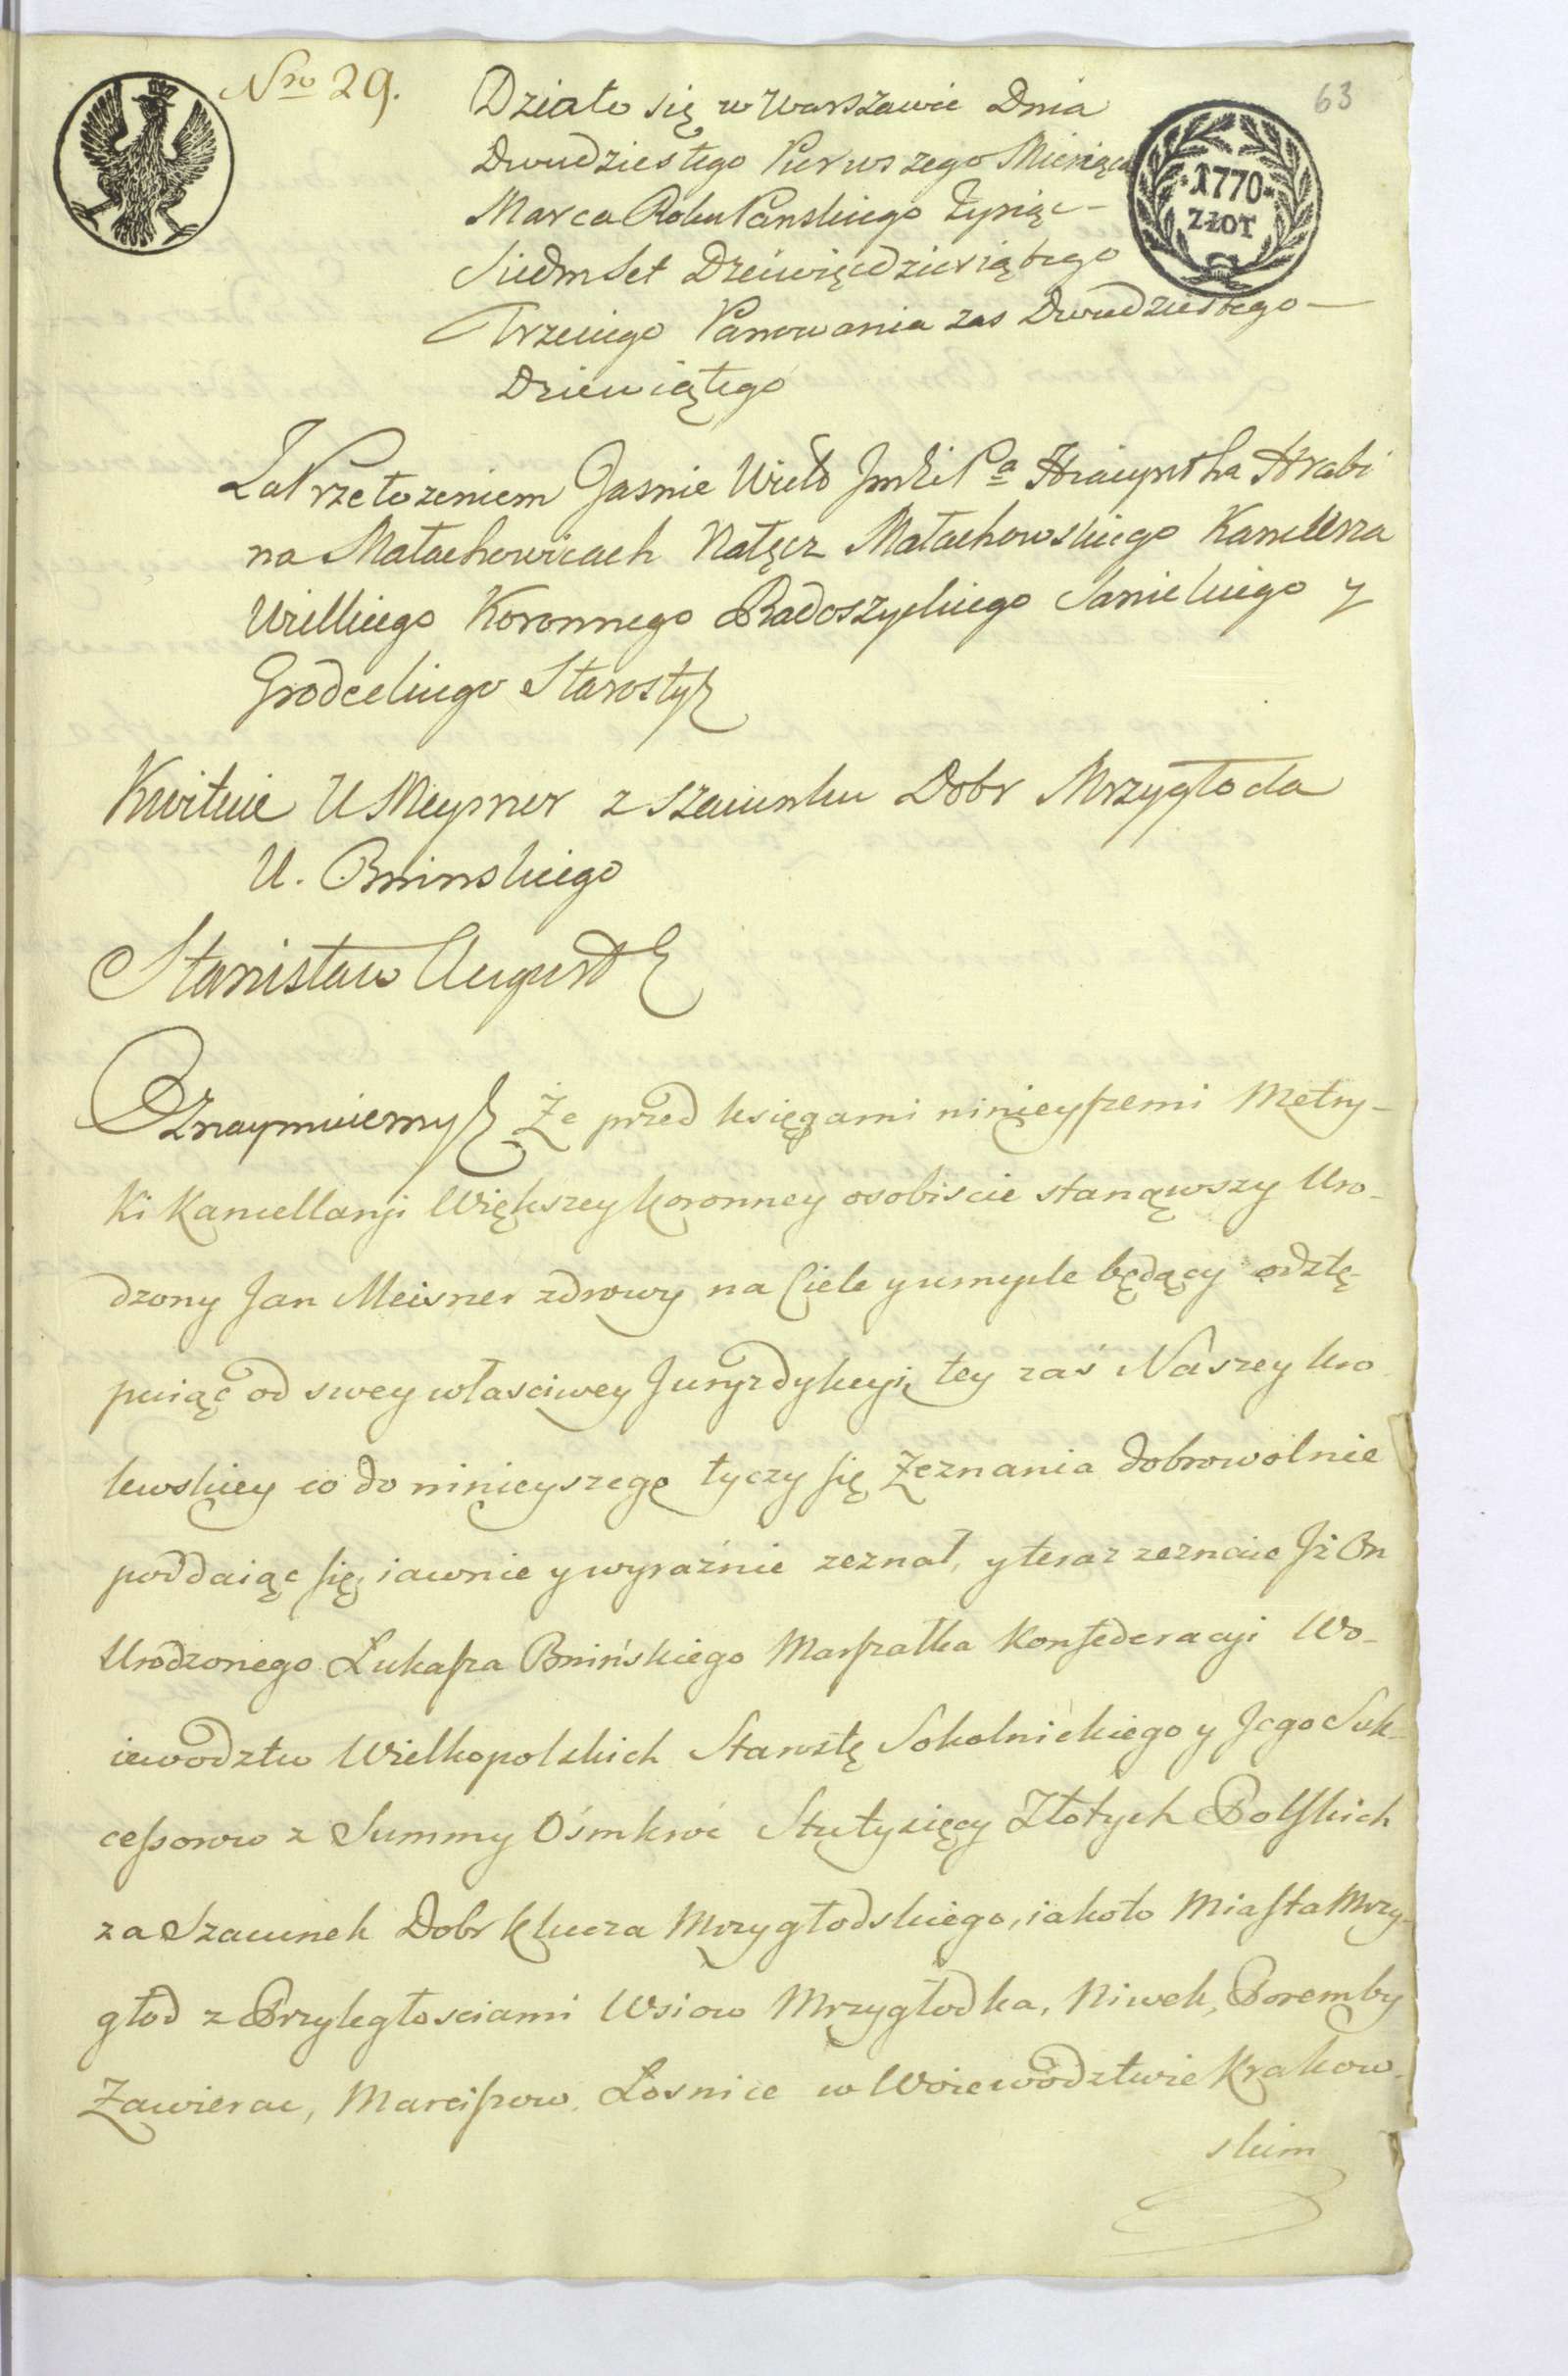 Nro 29.
63
Działo się w Warszawie Dnia
Dwudziestego Pierwszego Miesiąca
Marca Roku Panskiego Tysiąc-
Siedmset Dziewięcdziesiątego
Trzeciego Panowania zas Dwudziestego-
Dziewiątego
1770
ZŁOT
Za Przełozeniem Jasnie Wielo Jmści Pa Hiacyntha Hrabi
na Małachowicach Nałęcz Małachowskiego Kanclerza
Wielkiego Koronnego Radoszyckiego Sanickiego y
Grodeckiego Starosty
Kwituie U Meysner z szacunku Dobr Mrzygłoda
U. Bninskiego
Stanisław August
Oznaymuiemy Że przed księgami ninieyszemi Metry-
ki Kancellaryi Większey koronney osobiscie stanąwszy Uro-
dzony Jan Meisner zdrowy na Ciele y umysle będący odstę-
puiąc od swey własciwey Juryzdykcyi, tey zaś Naszey kro
lewskiey co do ninieyszego tyczy się Zeznania dobrowolnie
poddaiąc się, iawnie y wyraźnie zeznał, y teraz zeznaie Jż On
Urodzonego Łukasza Bnińskiego Marszałka Konfederacyi Wo-
iewodztw Wielkopolskich Starostę Sokolnickiego y Jego Suk-
cessorow z Summy Ośmkroć Stutysięcy Złotych Polskich
za Szacunek Dobr klucza Mrzygłodskiego, iakoto Miasta Mrzy-
głod z Przyległosciami Wsiow Mrzygłodka, Niwek, Poremby
Zawierac, Marciszow, Łosnice w Woiewodztwie Krakow-
skim